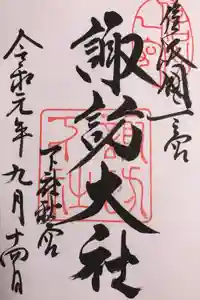 信濃國一之宮
諏訪大社
下社秋宮
令和元年九月十四日